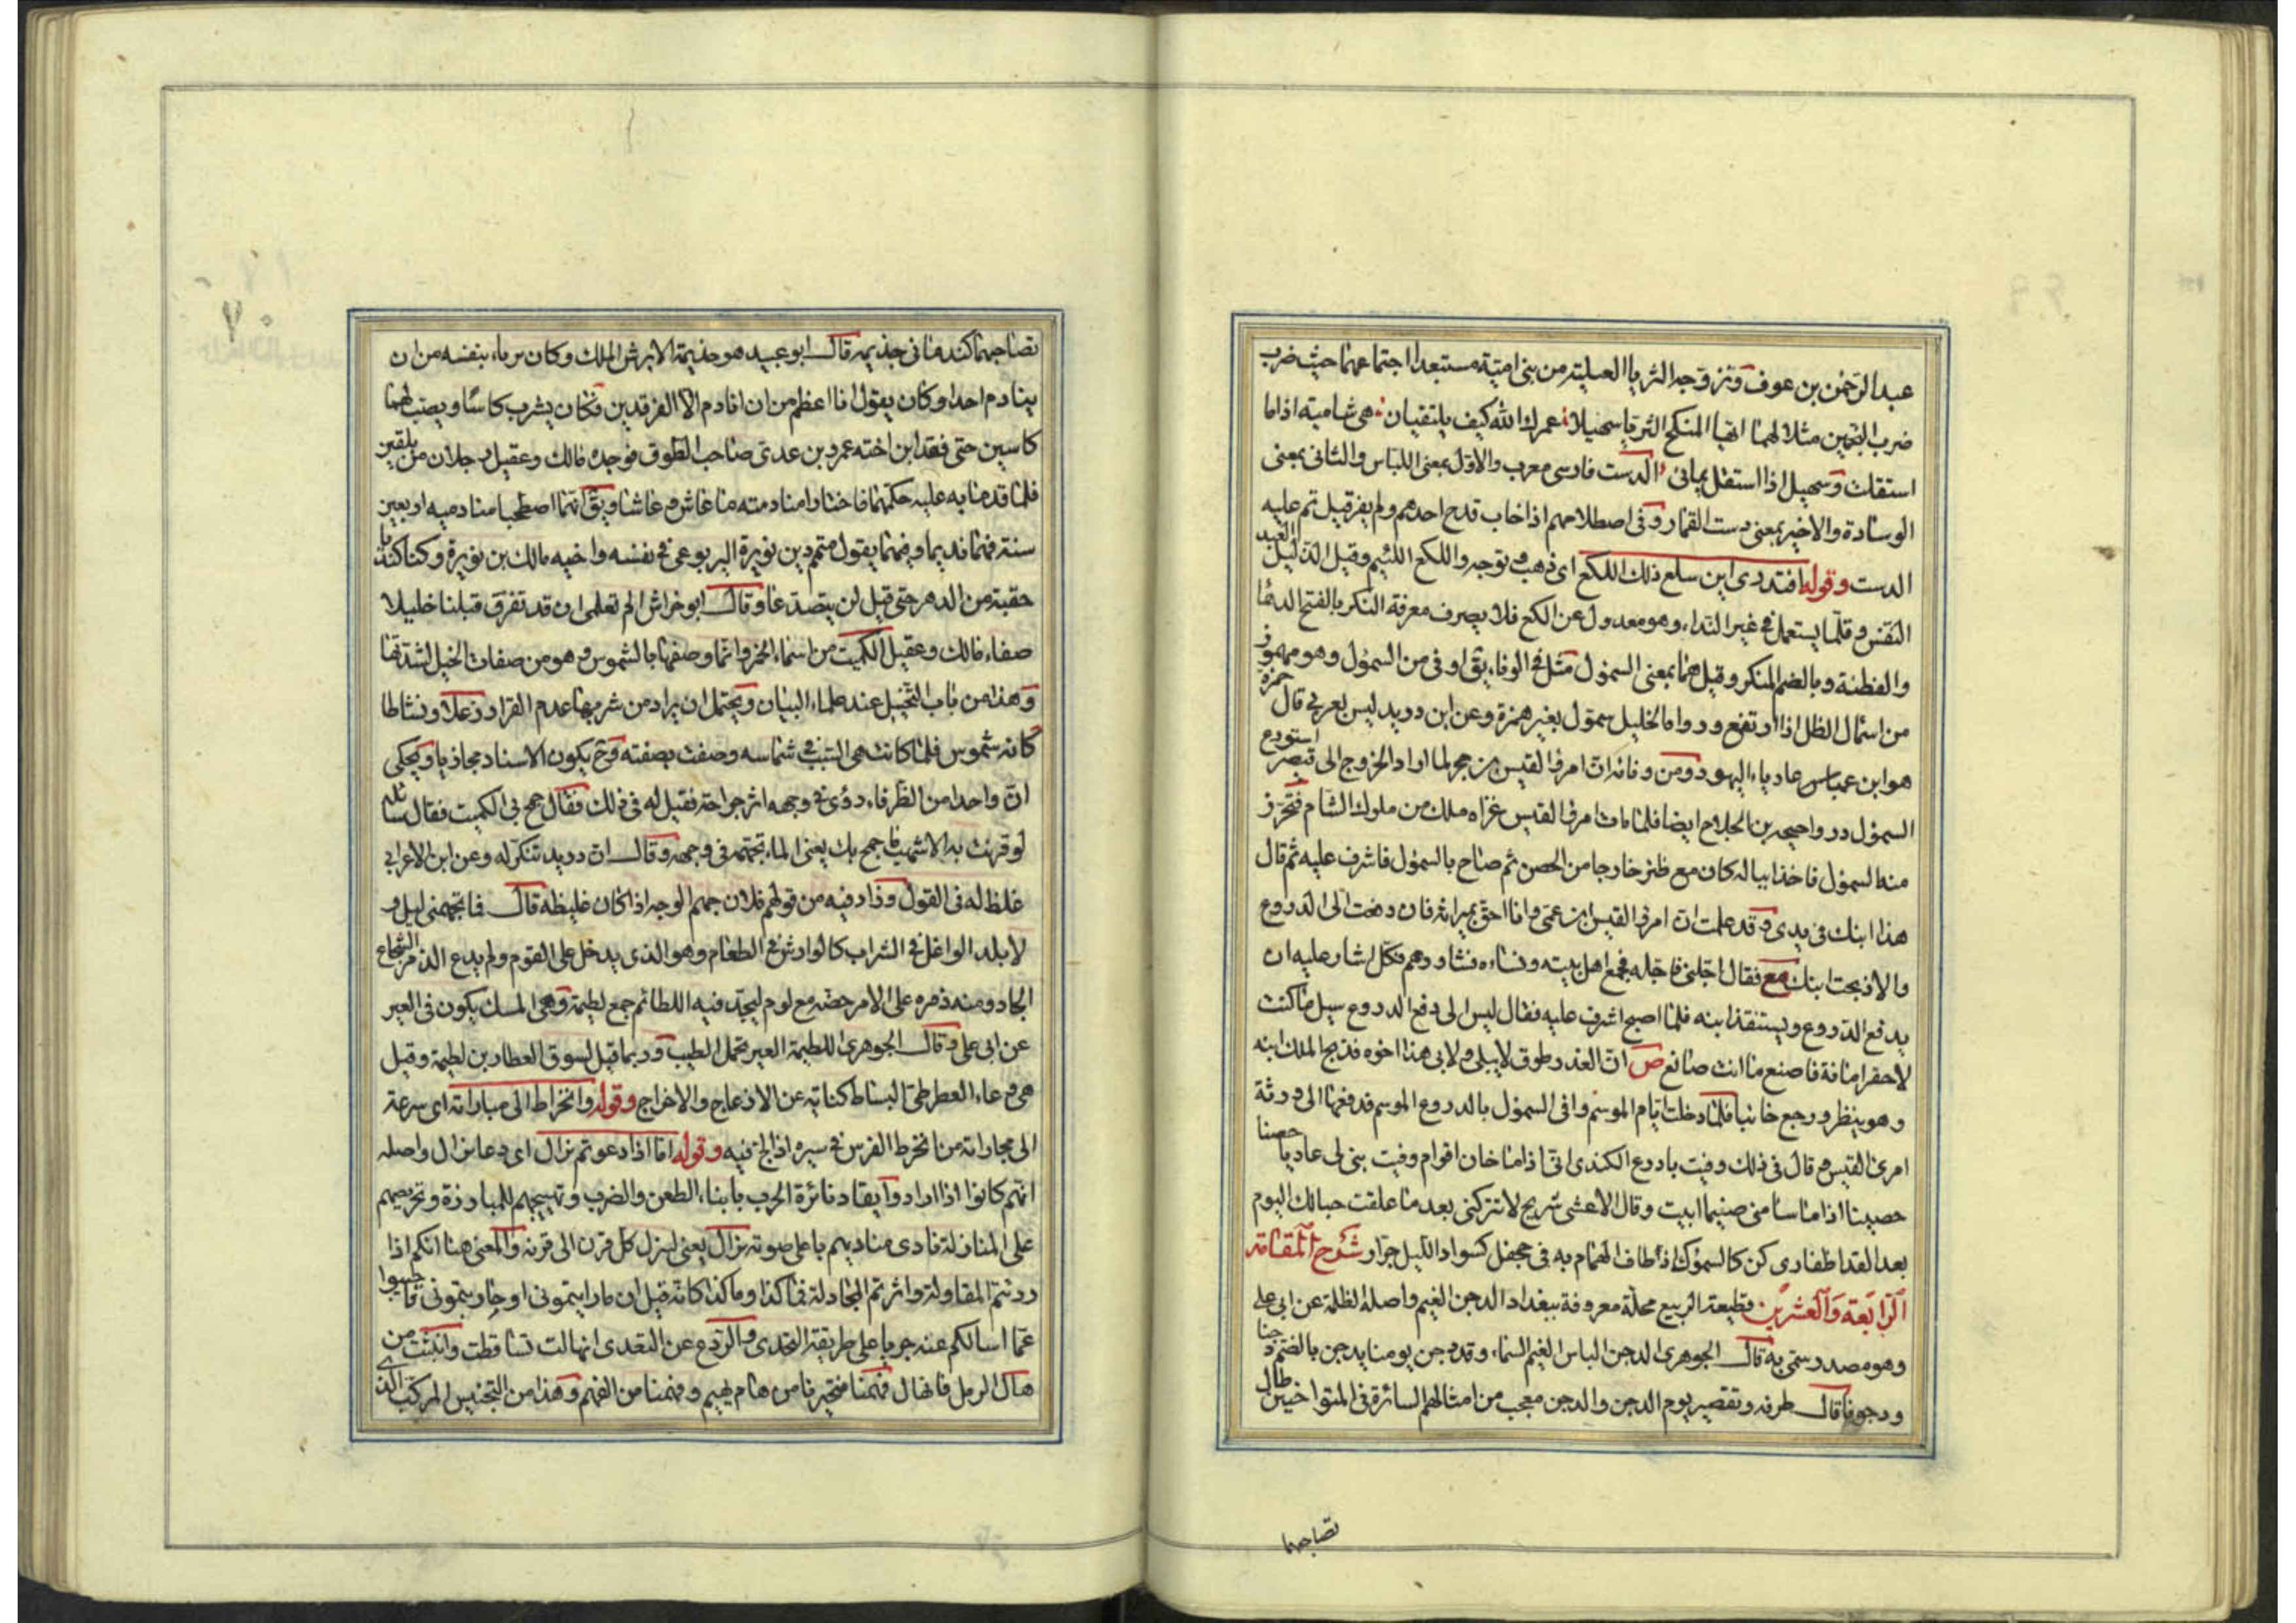 عبدالرحمن بن عوف وتزوجه الثريا العبلية من بنى امية مستبعدا اجتماعهما حيث ضرب
ضرب النجمين مثلا لهما ايها المنكح الثريا سهيلا عمرك الله كيف يلتقيان هى شامية اذا ما
استقلت وسهيل اذا استقل يمانى الدست فارسى معرب والاول بمعنى اللباس والثانى بمعنى
الوسادة والاخير بمعنى دست القمار وفى اصطلاحهم اذا خاب قدح احدهم ولم يفز قيل تم عليه
الدست وقوله افتدرى اين سلع ذلك اللكع اى ذهب وتوجه واللكع اللئيم وقيل الذليل العبد
النفس وقلما يستعمل فى غير النداء وهو معدول عن الكع فلا يصرف معرفة النكر بالفتح الدها
والفطنة وبالضم المنكر وقيل هما بمعنى السمؤل مثل فى الوفاء يق اوفى من السمؤل وهو مهموز
من اسمال الظل اذا ارتفع ورواه الخليل سمول بغير همزة وعن ابن دريد ليس بعربى قال حمزة
هو ابن عادياء اليهودى ومن وفائه ان امرئ القيس بن حجر لما اراد الخروج الى قيصر استودع
السمؤل دروا احيحة بن الجلاح ايضا فلما مات امرئ القيس غزاه ملك من ملوك الشام فتحرز
منه السمؤل فاخذ ابنا له كان مع ظئر خارجا من الحصن ثم صاح بالسمؤل فاشرف عليه ثم قال
هذا ابنك فى يدى وقد علمت ان امرئ القيس ابن عمى وانا احق بميراثه فان دفعت الى الدروع
والا ذبحت ابنك فقال اجلنى فاجله فجمع اهل بيته ونساءه فشاورهم فكل اشار عليه ان
يدفع الدروع ويستنقذ ابنه فلما اصبح اشرف عليه فقال ليس الى دفع الدروع سبيل ما كنت
لاحقر امانة فاصنع ما انت صانع ص ان الغدر طوق لا يبلى ولابنى هذا اخوه فذبح الملك ابنه
وهو ينظر ورجع خائبا فلما دخلت ايام الموسم وافى السمؤل بالدروع الموسم فدفعها الى ورثة
امرئ القيس وقال فى ذلك وفيت بادرع الكندى انى اذا ما خان اقوام وفيت بنى لى عاديا حصنا
حصينا اذا ما سامنى ضيما ابيت وقال الاعشى شريح لا تتركنى بعد ما علقت حبالك اليوم
بعد القد اظفارى كن كالسمؤل اذ طاف الهمام به فى جحفل كسواد الليل جرار شرح المقامة
الرابعة والعشرين قطيعة الربيع محلة معروفة ببغداد الدجن الغيم واصله الظلمة عن ابى على
وهو مصدر سمى به قال الجوهرى الدجن الباس الغيم السماء وقد دجن يومنا يدجن بالضم دجنا
ودجونا قال طرفه وتقصير يوم الدجن والدجن معجب من امثالهم السائرة فى المتواخيين طال
تصاجهما
٧٠
تصاجهما كندمانى جذيمه قال ابو عبيد هو جذيمة الابرش الملك وكان يرباء بنفسه من ان
ينادم احدا وكان يقول انا اعظم من ان انادم الا الفرقدين فكان يشرب كاسا ويصب لهما
كاسين حتى فقد ابن اخته عمرو بن عدى صاحب الطوق فوجده مالك وعقيل رجلان من بلقين
فلما قدما به عليه حكمهما فاختارا منادمته ما عاش وعاشا ويق انهما اصطحبا منادميه اربعين
سنة فهما نديماه وفيهما يقول متمم بن نويرة اليربوعى فى نفسه واخيه مالك بن نويرة وكنا كندمانى
حقبة من الدهر حتى قيل لن يتصدعا وقال ابو خراش الم تعلمى ان قد تفرق قبلنا خليلا
صفاء مالك وعقيل الكميت من اسماء الخمر وانما وصفها بالشموس وهو من صفات الخيل لشدتها
وهذا من باب التخييل عند علماء البيان ويحتمل ان يراد من شربها عدم القرار زعلا ونشاطا
كانه شموس فلما كانت هى السبب فى شماسه وصفت بصفته وح يكون الاسناد مجازيا ويحكى
ان واحدا من الظرفاء رؤى فى وجهه اثر جراحة فقيل له فى ذلك فقال جمح بى الكميت فقال
لو قرنت به الاشهب ما جمح بك يعنى الماء تجهم فى وجهه وقال ابن دريد تنكر له وعن ابن الاعرابى
غلظ له فى القول وزاد فيه من قولهم فلان جهم الوجه اذا كان غليظه قال فاتجهمنى ليل و
لا بلد الواغل فى الشراب كالوارش فى الطعام وهو الذى يدخل على القوم ولم يدع الذمر الشجاع
الجاد ومنه ذمره على الامر حضه مع لوم ليجد فيه اللطائم جمع لطيمة وهى المسك يكون فى العير
عن ابى على وقال الجوهرى اللطيمة العير تحمل الطيب وربما قيل لسوق العطارين لطيمة وقيل
هى وعاء العطر طى البساط كناية عن الازعاج والاخراج وقوله وانخراط الى مباراته اى سرعة
الى مجاراته من انخرط الفرس فى سيره اذا لج فيه وقوله اما اذا دعوتم نزال اى دعا نزال واصله
انهم كانوا اذا ارادوا ايقاد نائرة الحرب بابناء الطعن والضرب وتهييجهم للمبارزة وتحريضهم
على المنازلة نادى مناديهم باعلى صوته نزال يعنى لينزل كل قرن الى قرنه والمعنى هنا انكم اذا
رددتم المقاولة واثرتم المجادلة فما كذا وما كذا كانه قيل ان ماريتمونى او جاريتمونى فاجيبوا
عما اسالكم عنه جريا على طريقة التحدى والردع عن التعدى انهالت تساقطت وانبثت من
هال الرمل فانهال فهمنا متحيرنا من هام يهيم وفهمنا من الفهم وهذا من التجنيس المركب الذى